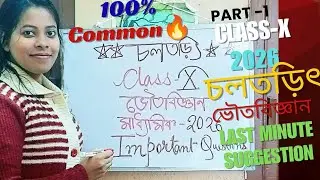 100%
Common🔥
PART -1
CLASS-X
2026
চলতড়িৎ
ভৌতবিজ্ঞান
LAST MINUTE
SURGESTION
★★ চলতড়িৎ
Class-X
ভৌতবিজ্ঞান
মাধ্যমিক-2026
Important-Questions